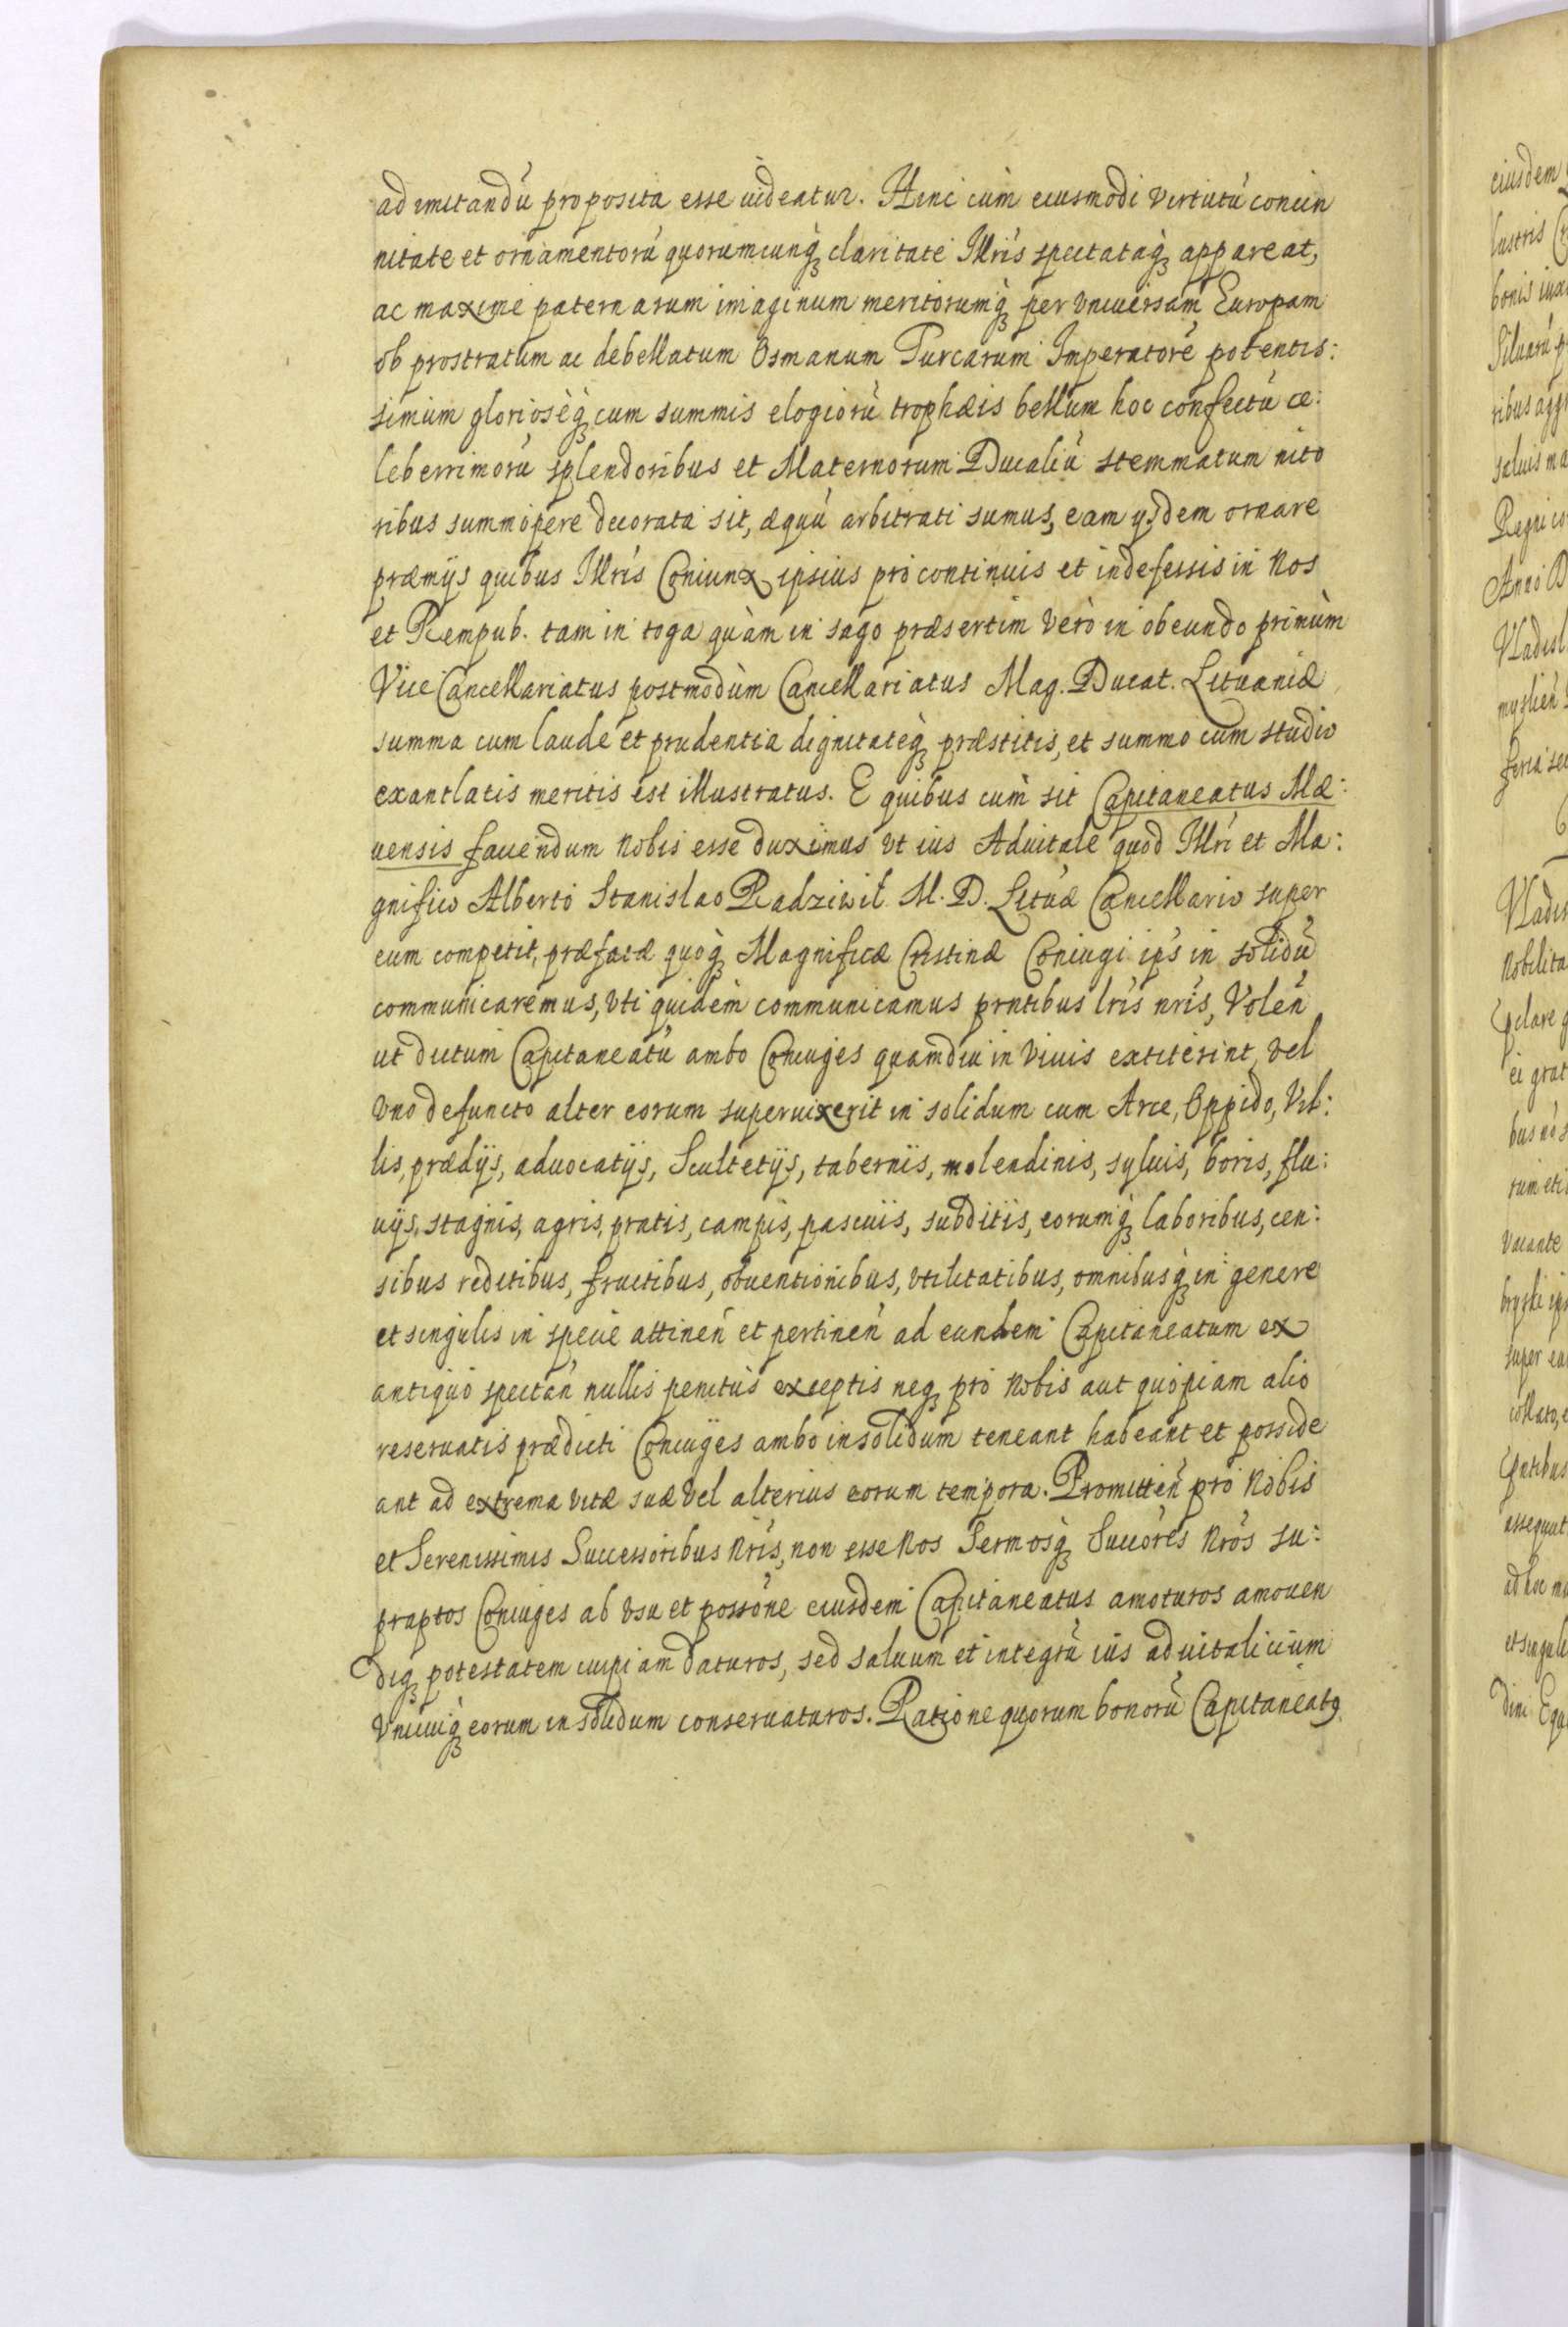 ad imitandũ proposita esse uideatur. Hinc cùm eiusmodi virtutũ concin
nitate et ornamentorũ quorumcunq́ꝫ claritate Illris spectataq́ꝫ appareat,
ac maxime paternarum imaginum meritorumq́ꝫ per vniuersam Europam
ob prostratum ac debellatum Osmanum Turcarum Imperatorẽ potentis:
simum glorioseq́ꝫ cum summis elogiorũ trophæis bellum hoc confectũ ce:
leberrimorũ splendoribus et Maternorum Ducaliũ stemmatum nito
ribus summopere decorata sit, æquũ arbitrati sumus, eam ysdem ornare
præmijs quibus Illris Coniunx ipsius pro continuis et indefessis in Nos
et Rempub. tam in toga quàm in sago præsertim verò in obeundo primùm
ViceCancellariatus postmodùm Cancellariatus Mag. Ducat. Lituaniæ
summa cum laude et prudentia dignitateq́ꝫ præstitis, et summo cum studio
exantlatis meritis est illustratus. E quibus cum sit Capitaneatus Mæ:
uensis fauendum Nobis esse duximus vt ius Aduitale quod Illri et Ma:
gnifico Alberto Stanislao Radziwił M. D. Lituæ Cancellario super
eum competit, præfatæ quoq́ꝫ Magnificæ Cristinæ Coniugi ips in solidũ
communicaremus, vti quidèm communicamus prntibus lris nris, Volen̄
ut dictum Capitaneatũ ambo Coniuges quamdiu in viuis extiterint, vel
vno defuncto alter eorum superuixerit in solidum cum Arce, Oppido, Vil:
lis, prædijs, aduocatijs, Scultetijs, tabernis, molendinis, syluis, boris, flu:
uijs, stagnis, agris, pratis, campis, pascuis, subditis, eorumq́ꝫ laboribus, cen:
sibus reditibus, fructibus, obuentionibus, vtilitatibus, omnibusq́ꝫ in genere
et singulis in specie attinen̄ et pertinen̄ ad eundem Capitaneatum ex
antiquo spectan̄ nullis penitus exceptis neqꝫ pro Nobis aut quopiam alio
reseruatis prædicti Coniuges ambo in solidum teneant habeant et posside
ant ad extrema vitæ suæ vel alterius eorum tempora. Promitten̄ pro Nobis
et Serenissimis Successoribus Nris, non esse Nos Sermosq́ꝫ Succores Nros su:
praptos Coniuges ab vsu et possone eiusdem Capitaneatus amoturos amouen
diqꝫ potestatem cuipiam daturos, sed saluum et integrũ ius aduitalicium
vnicuiq́ꝫ eorum in solidum conseruaturos. Ratione quorum bonorũ Capitaneatꝯ